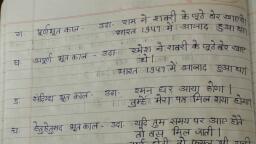 ग पूर्णभूत काल - उदा. राम ने शबरी के जूठे बेर खाए थे।
भारत 1947 में आजाद हुआ था।
घ अपूर्ण भूत काल - उदा. रमेश ने शबरी के जूठे बेर खाए थे।
भारत 1947 में आजाद हुआ था।
ङ संदिग्ध भूत काल - उदा. आया होगा।
तुम्हे मेरा पत्र मिल गया होगा।
च हेतुहेतुमद् भूत काल - उदा. यदि तुम समय पर आए होते
तो बस मिल जाती।